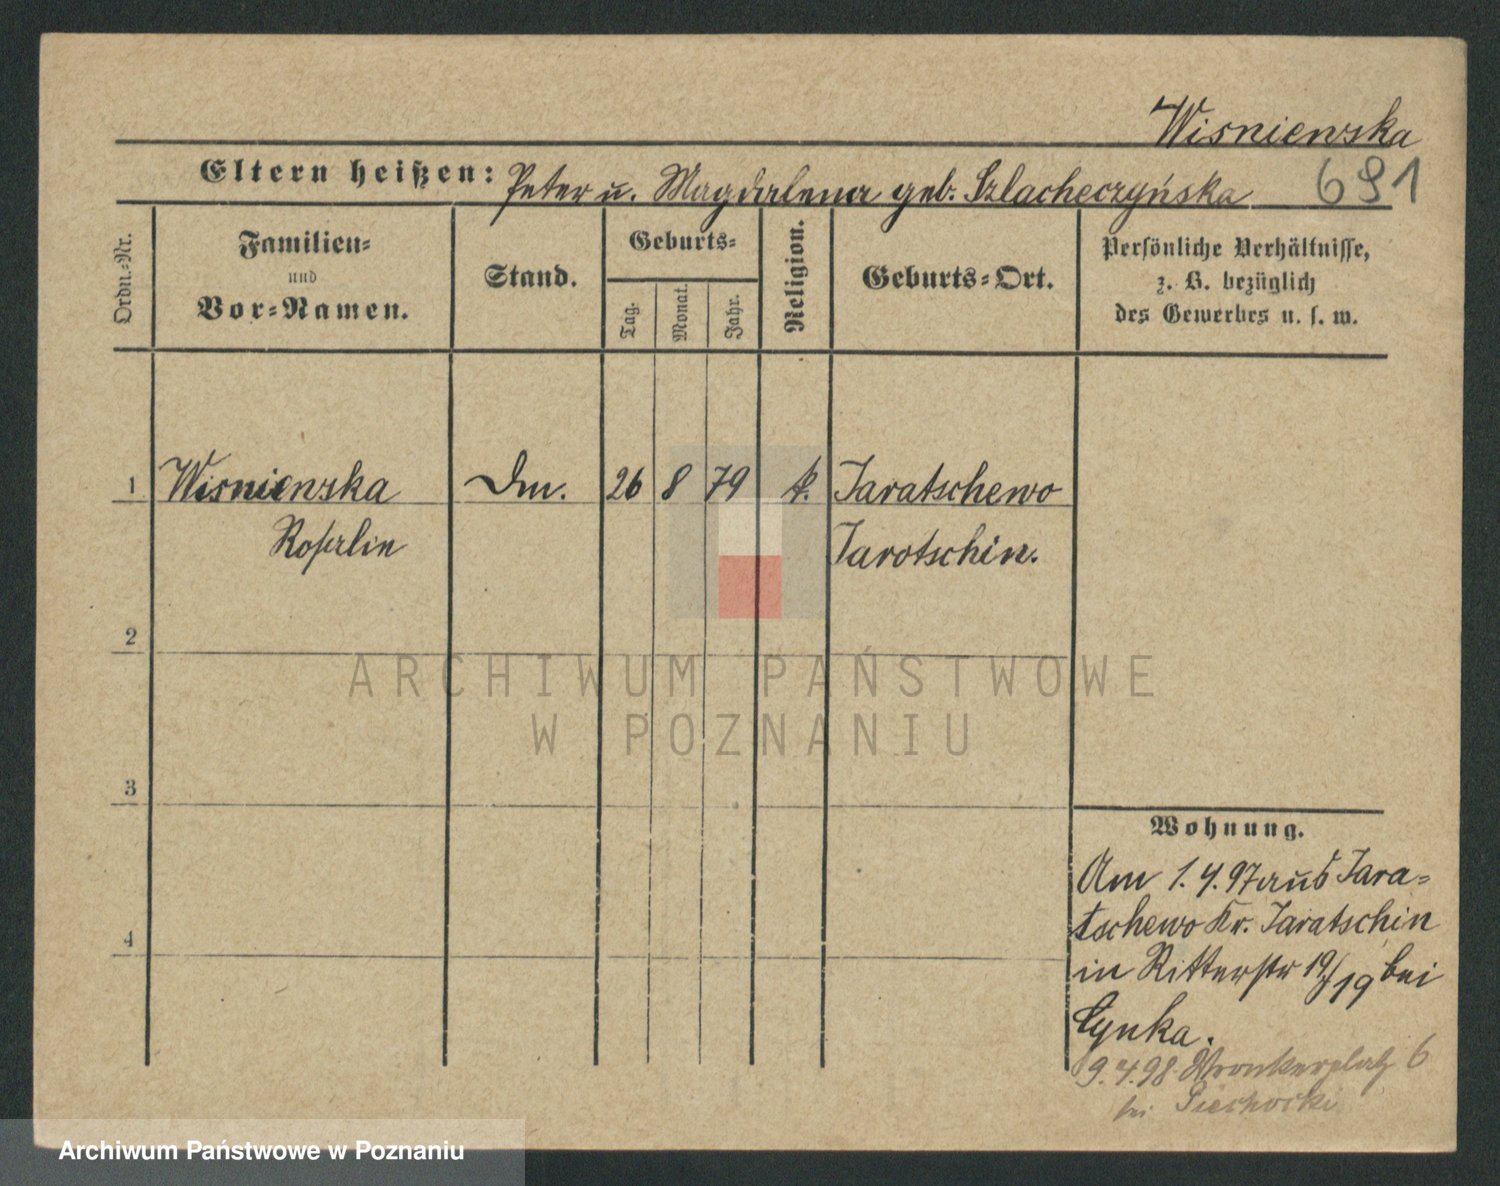 Wisniewska
691
Eltern heißen: Peter u. Magdalena geb. Szlacheczyńska
Ordn.-Nr.
Familien-
und
Vor-Namen.
Stand.
Geburts-
Tag.
Monat.
Jahr.
Religion.
Geburts-Ort.
Persönliche Verhältnisse,
z. B. bezüglich
des Gewerbes u. s. w.
1 Wisniewska Dm. 26 8 79 k. Jaratschewo
Rosalie Jarotschin.
2
3
4
Wohnung.
Am 1.4.97 aus Jara-
tschewo Kr. Jaratschin
in Ritterstr 19/19 bei
9.4.98 Wronkerplatz 6
bei
ARCHIWUM PAŃSTWOWE
W POZNANIU
Archiwum Państwowe w Poznaniu